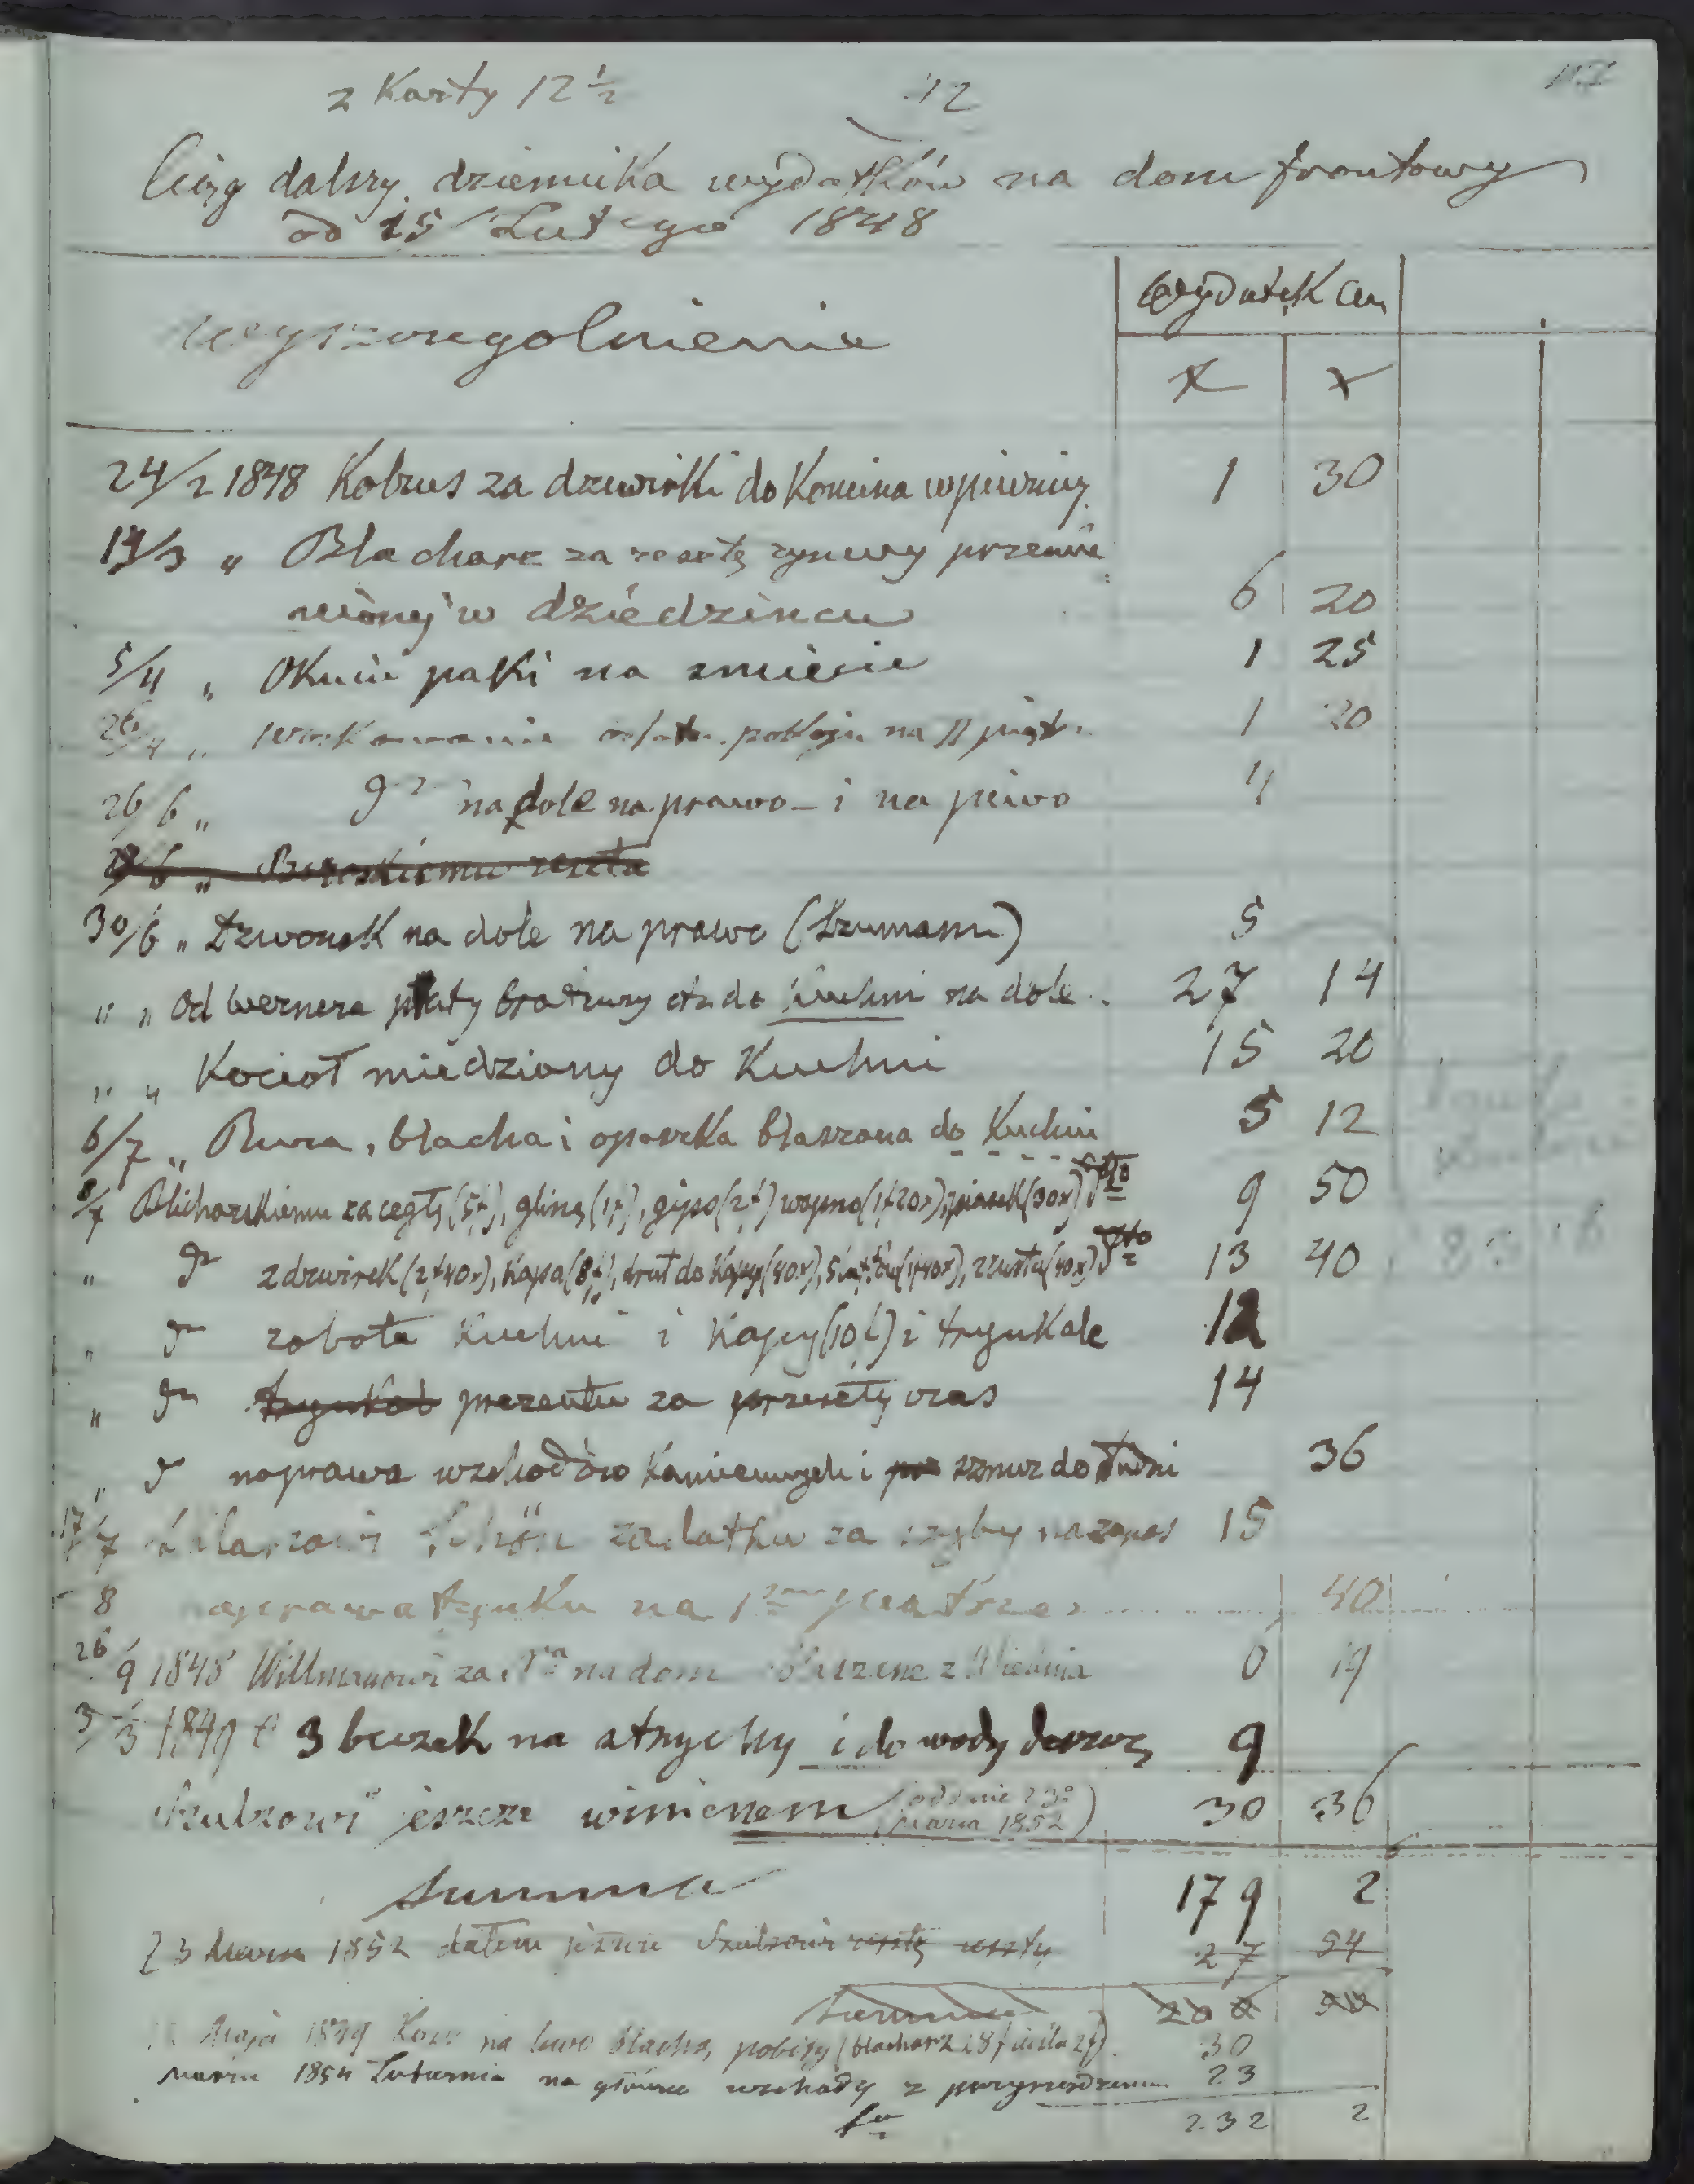 z Karty 12 1/2 12
Ciąg dalszy dziennika wydatków na dom frontowy
od 15 Lutego 1848
wyszczegolnienie
Wydatek
x
24/2 1848 Kobus za dzwirki do Komina w piwnicy 1 30
14/3 " Blacharz za resztę rynwy przemie 
nionej w dziedzincu 6 20
5/4 " Okucie paki na zmiecie 1 25
26/4 " pokoju na II piętr. 1 20
26/6 " na dole na prawo - i na piwo 4
30/6 " Dzwonek na dole na prawo (Szumann) 5
" " Od Wernera płaty bratrury do kuchni na dole 27 14
" " Kocioł miedziany do Kuchni 15 20
6/7 " Rura, blacha i opaszka blaszana do Kuchni 5 12
8/7 Blicharskiemu za cegłę (5f), glinę (1f), gipso (2f) wapno (1f20x), piasek (30x) 9 50
" dzwirek (2f40x), Kapa (8f), drut do Kapy (40x), (1f40x), (40x) 13 40
" robota Kuchni i Kapy (10f) i trynkale 12
" prezentu za przeszły czas 14
" naprawa wzchodów Kamiennych i sznur do studni 36
17/7 Schön zadatku za szyby na zapas 15
8 naprawa tynku na piętrze 40
26/9 1848 Willmanowi za na dom z Wiednia 0 19
3/3 1849 3 beczek na strychy i do wody deszcz 9
Szulzowi jeszcze winienem (oddanie 23° Marca 1852) 30 36
Summa 179 2
23 Marca 1852 dałem jeszcze Szulzowi resztę 27 54
Summa
Maja 1849 na blachą pobity (blacharz 28f cieśla 2f) 30
Marca 1854 Latarnia na główne wschody z 23
232 2